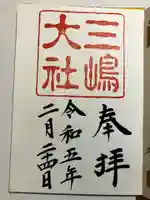 奉拝
三嶋
大社
令和五年
二月二十四日